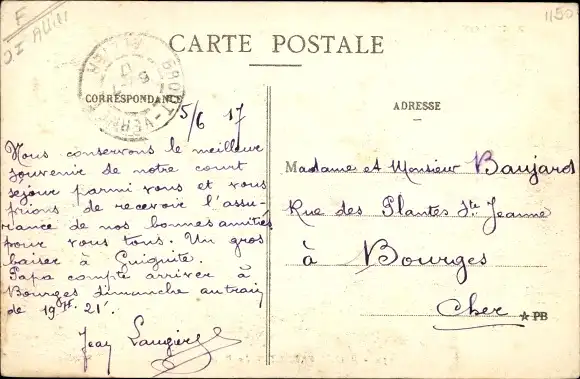 E
03 Allier
1150
CARTE POSTALE
BROUT-VERNET
ALLIER
CORRESPONDANCE
5/6 17
Nous conservons le meilleur
souvenir de notre court
séjour parmi vous et vous
prions de recevoir l'assu-
rance de nos bonnes amitiés
pour vous tous. Un gros
baiser à Guiguite.
Papa compte arriver à
Bourges dimanche au train
de 19H. 21'.
Jean Laugier
ADRESSE
Madame et Monsieur Baujard
Rue des Plantes Ste Jeanne
à Bourges
Cher
PB